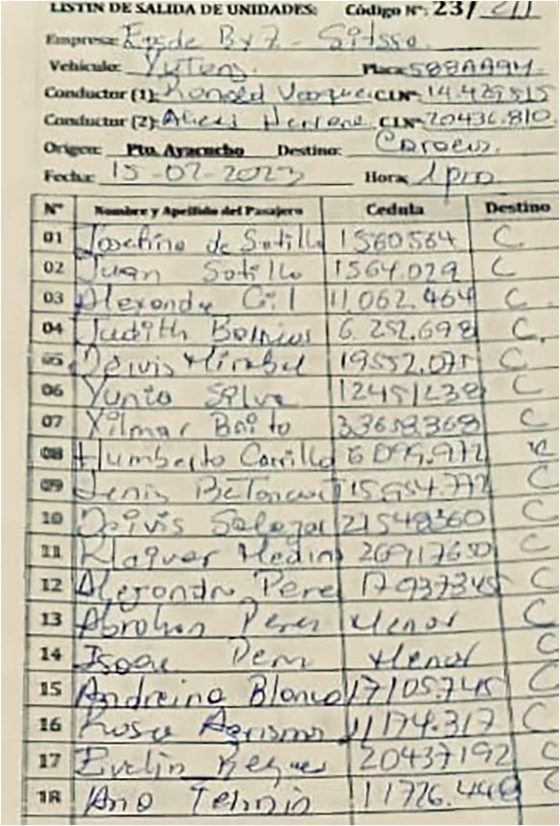 LISTIN DE SALIDA DE UNIDADES: Código Nº: 23/
Empresa: Bx7 -
Vehiculo: Yutong. Placa: 588AA9M
Conductor (1): CI.Nº: 14.429.515
Conductor (2): CI.Nº: 20436.810.
Origen: Pto. Ayacucho Destino:
Fecha: 15-07-2023 Hora: 1 pm
Nº Nombre y Apellido del Pasajero Cedula Destino
01 Josefina de Sotillo 1560564 C
02 Juan Sotillo 1564.079 C
03 Alexander Gil 11.062.464 C
04 Judith 6.252.698 C.
05 Deivis Mirabal 19552.071 C
06 Yunio Silva 12451238 C
07 Yilmar Brito 33658368 C
08 Humberto Carrillo 6099.972
09 Lenis Betancourt 15.954.772 C
10 Deivis Salazar 21548360 C
11 Medina 26917630 C
12 Alejandro Perez 17937345 C
13 Abrahan Perez Menor C
14 Isaac Menor C
15 Andreina Blanco 17105.745 C
16 Rosa 11174.317 C
17 Evelin 20437192
18 Ana 11726.448 C